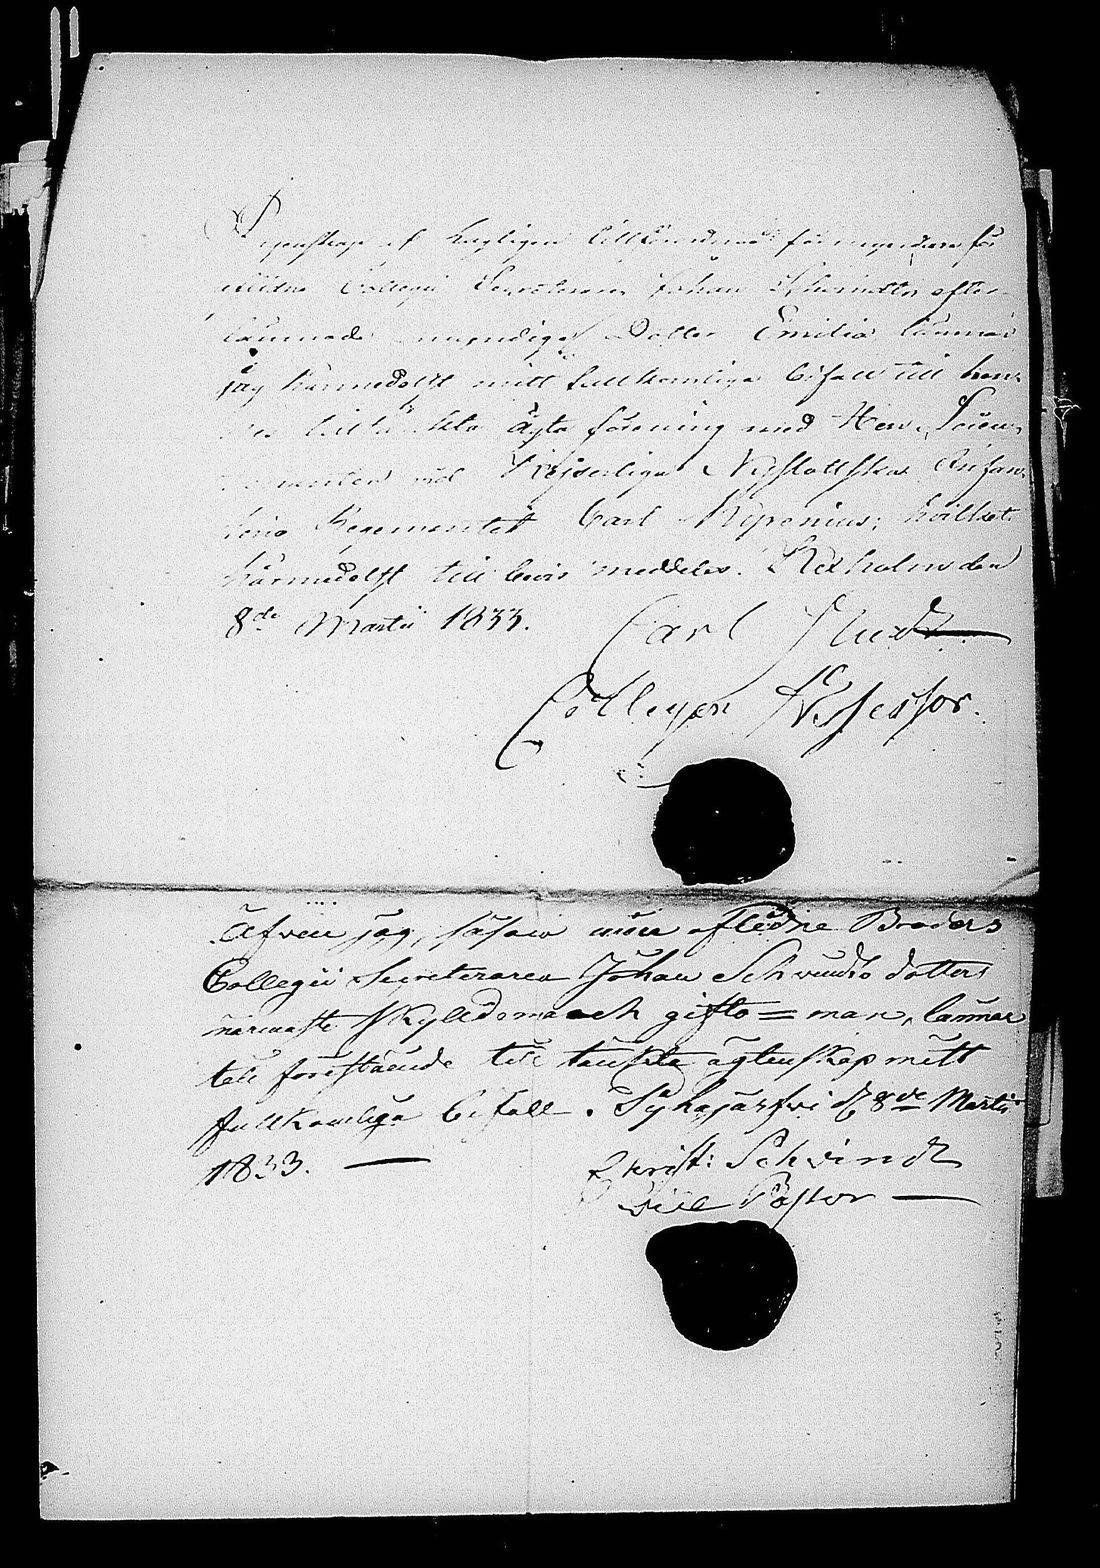 Egenskap af lagligen tillförordnad förmyndare för
aflidne Collegii Secreteraren Johan Schwindts efter-
lämnade omyndiga Dotter Emilia lämnar
jag härmedelst mitt fullkomliga bifall till hen-
nes tilltänkta ägta förening med Herr
vid Kejserliga Nyslottska Infan-
terie Regementet Carl Nyronius; hvilket
härmedelst till bevis meddelas. Kexholm den
8de Martii 1833.
Carl
Collegen Assessor.
Äfven jag, såsom min aflidne Broders
Collegii Secreteraren Johan Schvindts dotters
närmaste skyldeman och gifto=man, lämnar
till förestående till tänkta ägtenskap mitt
fullkomliga bifall. d 8de Martii
1833.
Christ: Schvindt
Vice Pastor